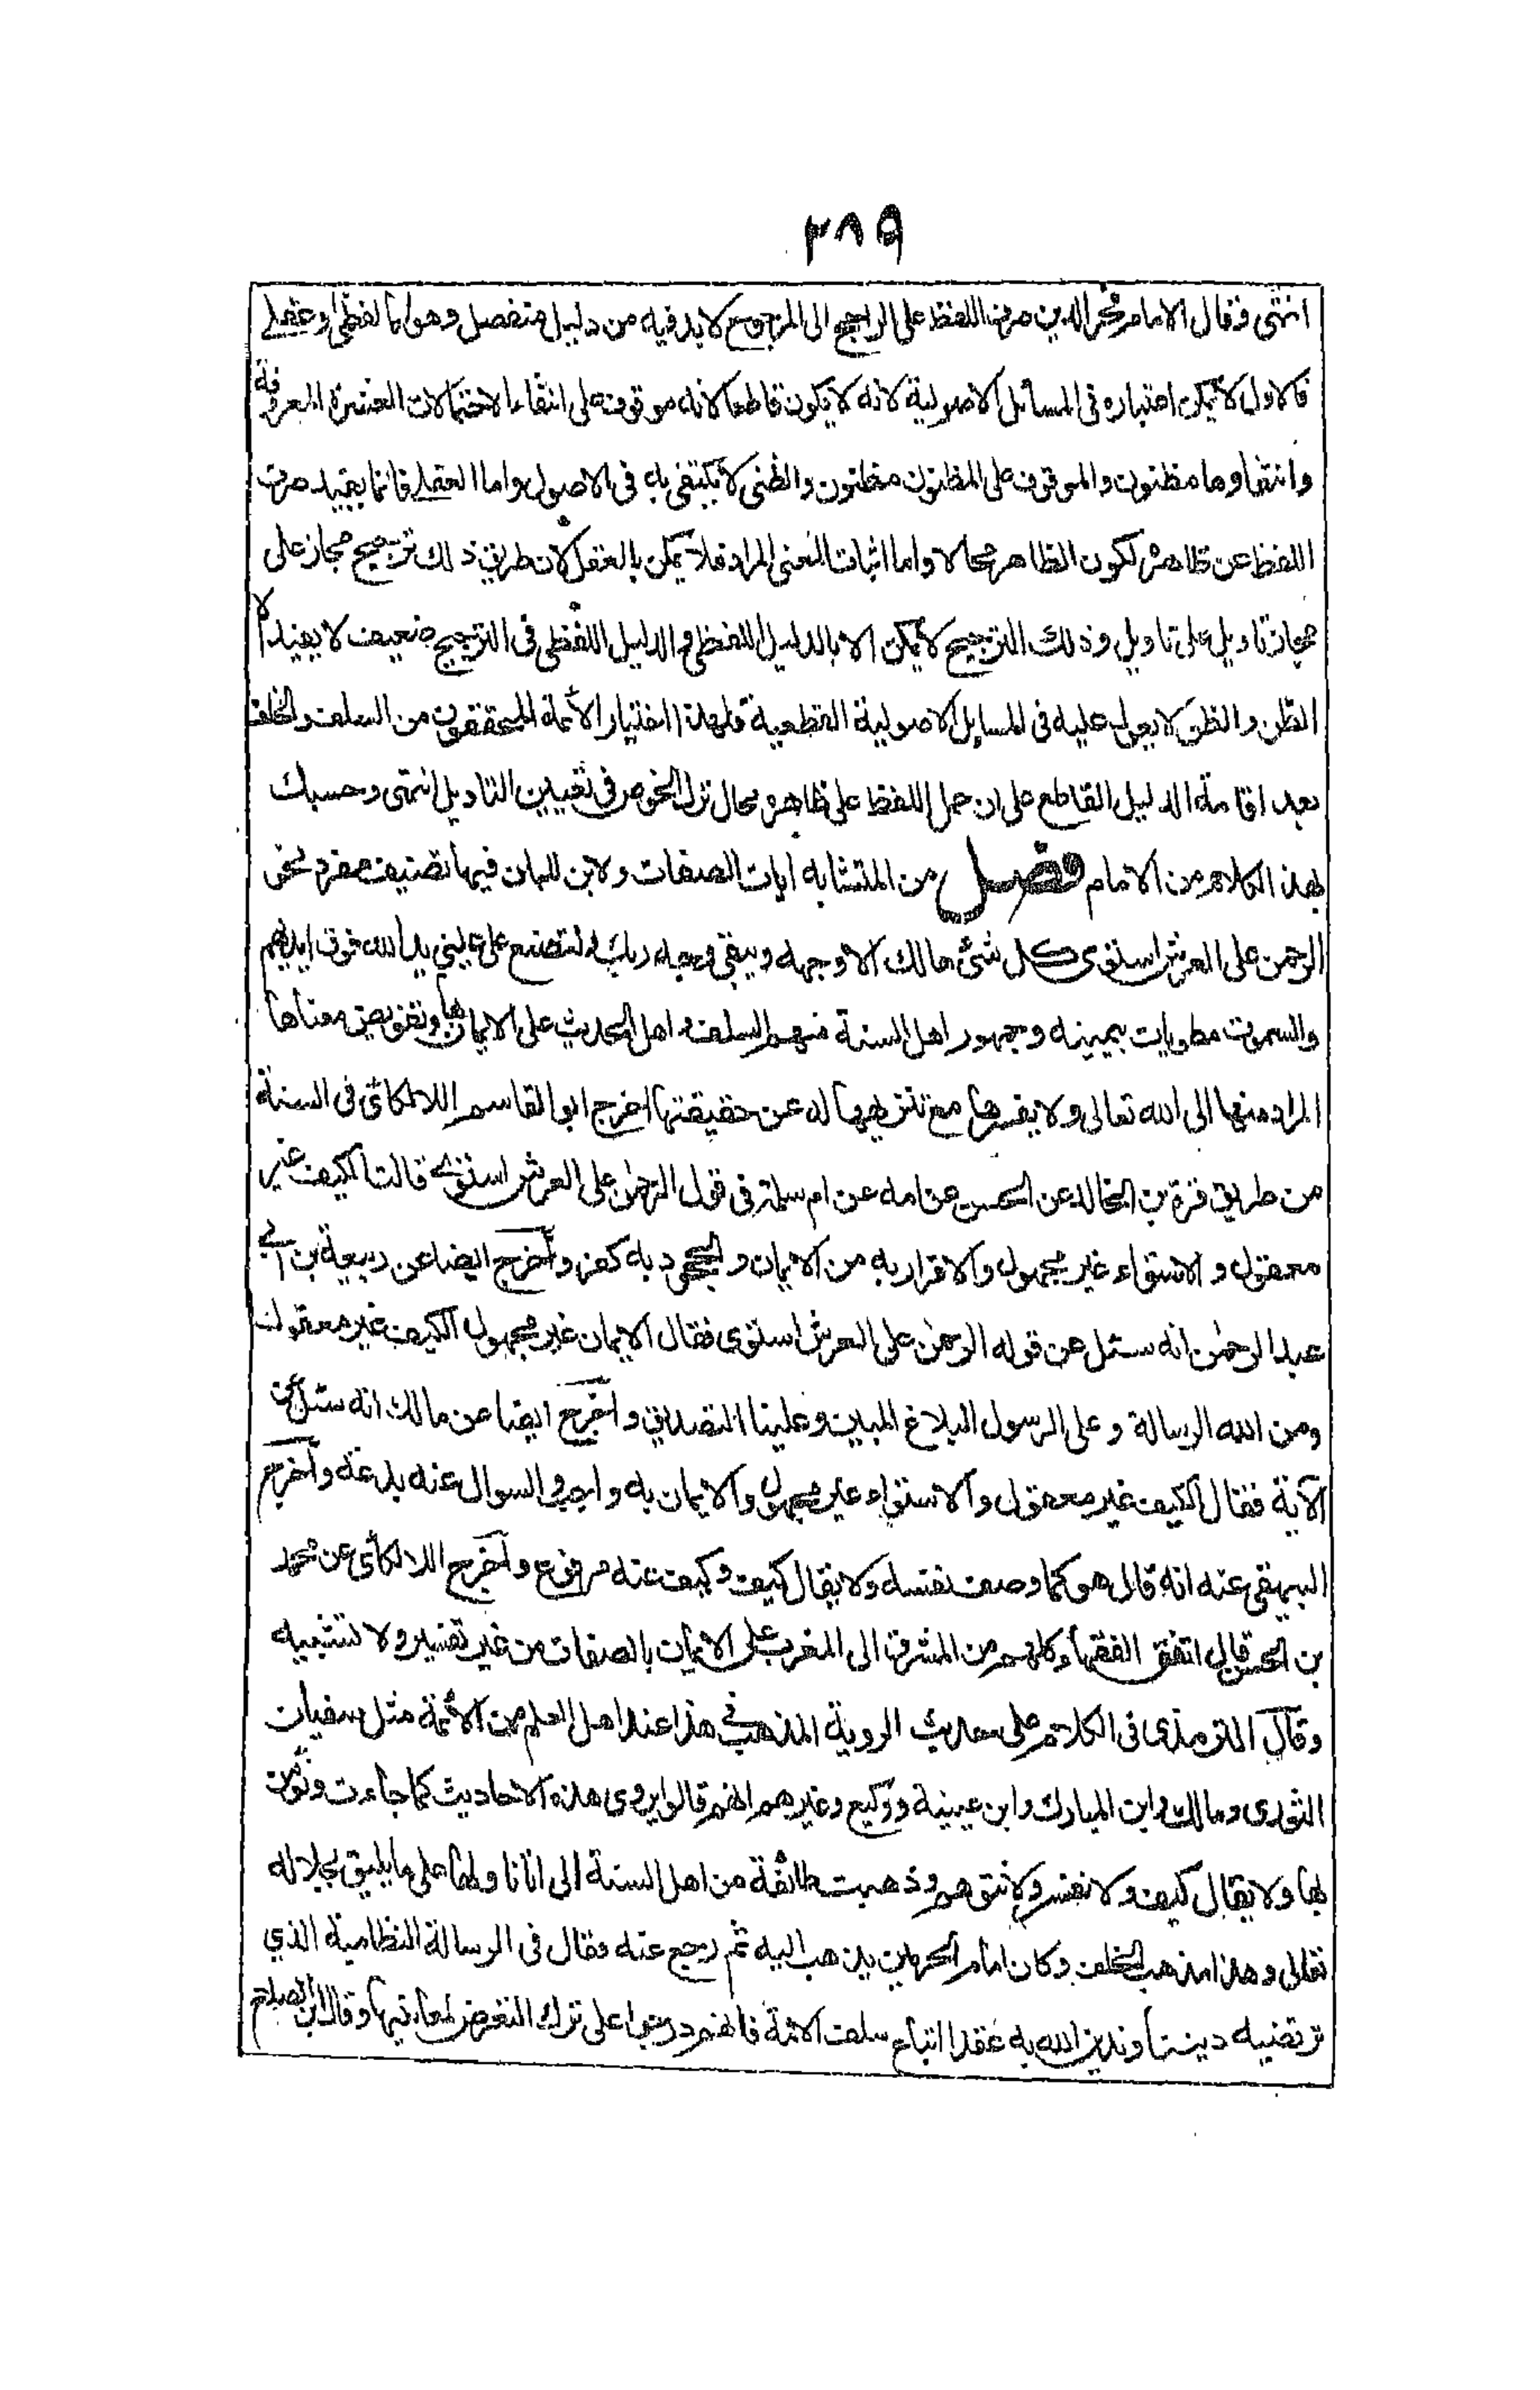 ٣٨٩
انتهى وقال الامام فخر الدين صرف اللفظ على الراجح الى المرجوح لا بد فيه من دليل منفصل وهو اما لفظى او عقلى
فالاول لا يمكن اعتباره فى المسائل الاصولية لانه لا يكون قاطعا لانه موقوف على انتفاء الاحتمالات العشرة المعروفة
وانتفاوها مظنون والموقوف على المظنون مظنون والظنى لا يكتفى به فى الاصول واما العقلى فانما يفيد صرف
اللفظ عن ظاهره لكون الظاهر محالا واما اثبات المعنى المراد فلا يمكن بالعقل لان طريق ذلك ترجيح مجاز على
مجاز وتاويل على تاويل وذلك الترجيح لا يمكن الا بالدليل اللفظى والدليل اللفظى فى الترجيح ضعيف لا يفيد الا
الظن والظن لا يعول عليه فى المسايل الاصولية القطعية فلهذا اختيار الأئمة المحققون من السلف والخلف
بعد اقامة الدليل القاطع على ان حمل اللفظ على ظاهره محال ترك الخوض فى تعيين التاويل انتهى وحسبك
بهذا الكلام من الامام فصل من المتشابه ايات الصفات ولابن اللبان فيها تصنيف مفرد نحو
الرحمن على العرش استوى كل شئ هالك الا وجهه ويبقى وجه ربك ولتصنع على عينى يد الله فوق ايديهم
والسموت مطويات بيمينه وجمهور اهل السنة منهم السلف واهل الحديث على الايمان بها وتفويض معناها
المراد منها الى الله تعالى ولا نفسرها مع تنزيهنا له عن حقيقتها اخرج ابو القاسم اللالكائى فى السنة
من طريق قرة بن الخالد عن الحسن عن امه عن ام سلمة فى قول الرحمٰن على العرش استوى قالت الكيف غير
معقول و الاستواء غير مجهول والاقرار به من الايمان والجحود به كفر وأخرج ايضا عن ربيعة بن ابى
عبد الرحمٰن انه سئل عن قوله الرحمٰن على العرش استوى فقال الايمان غير مجهول الكيف غير معقول
ومن الله الرسالة وعلى الرسول البلاغ المبين وعلينا التصديق واخرج ايضا عن مالك انه سئل عن
الآية فقال الكيف غير معقول والاستواء غير مجهول والايمان به واجب والسوال عنه بدعة وأخرج
البيهقى عنه انه قال هو كما وصف نفسه ولا يقال كيف وكيف عنه مرفوع وأخرج اللالكائى عن محمد
بن الحسن قال اتفق الفقهاء كلهم من المشرق الى المغرب على الايمان بالصفات من غير تفسير ولا تشبيه
وقال الترمذى فى الكلام على حديث الروية المذهب فى هذا عند اهل العلم من الأئمة مثل سفيان
الثورى ومالك وابن المبارك وابن عيينة ووكيع وغيرهم انهم قالوا يروى هذه الاحاديث كما جاءت ونؤمن
بها ولا يقال كيف ولا نفسر ولا نتوهم وذهبت طائفة من اهل السنة الى اننا ناولها على ما يليق بجلاله
تعالى وهذا مذهب الخلف وكان امام الحرمين يذهب اليه ثم رجع عنه فقال فى الرسالة النظامية الذي
نرتضيه دينا وندين الله به عقدا اتباع سلف الائمة فانهم درجوا على ترك التعرض لمعانيها وقال ابن الصلاح